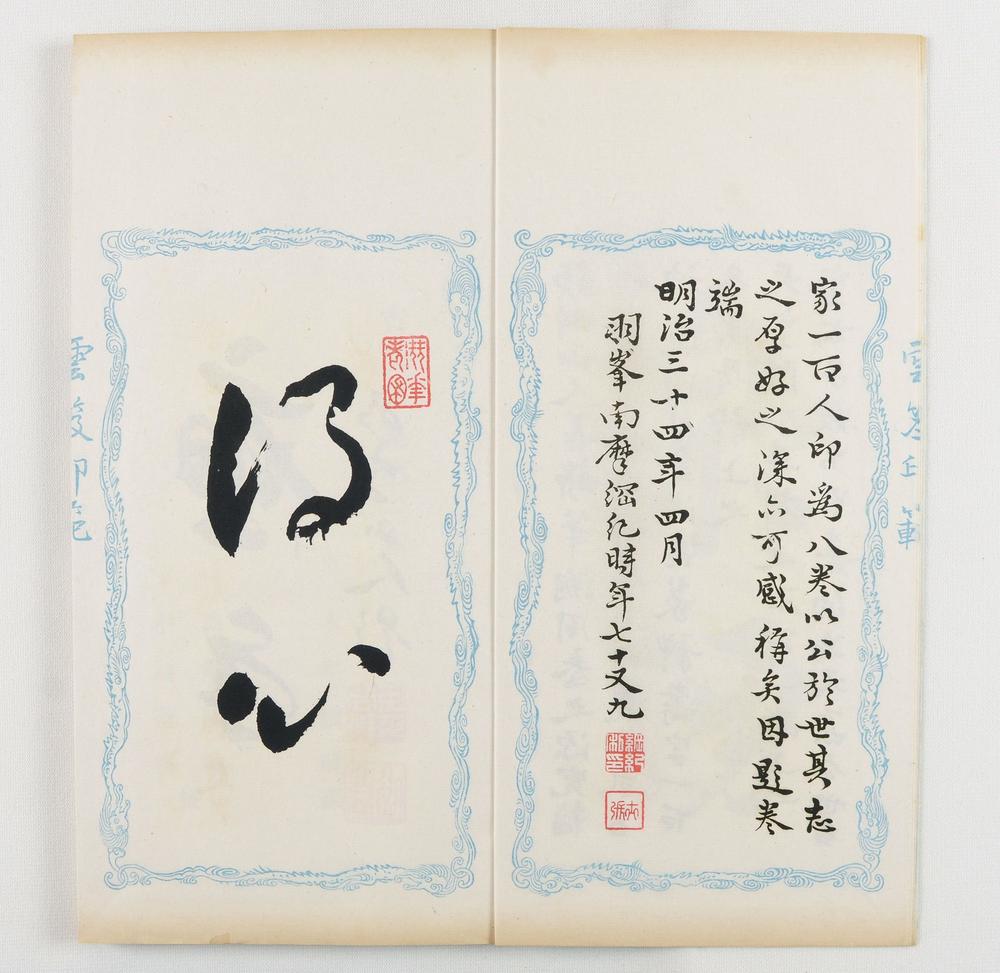 家一百人印為八卷以公於世其志
之厚好之深亦可感稱矣因題卷
端
明治三十四年四月
羽峯南摩綱紀時年七十又九
得心